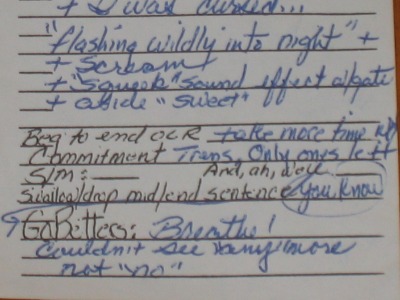 + I was cursed...
"flashing wildly into night" +
+ Scream +
+ "Squeek" sound effect o/gate
+ aside "sweet"
Beg to end OCR take more time w/
Commitment Trans. Only ones left
S/M: And, ah, well
/drop mid/end sentence you know
Go Betters: Breathe!
Couldn't see any more
not "no"